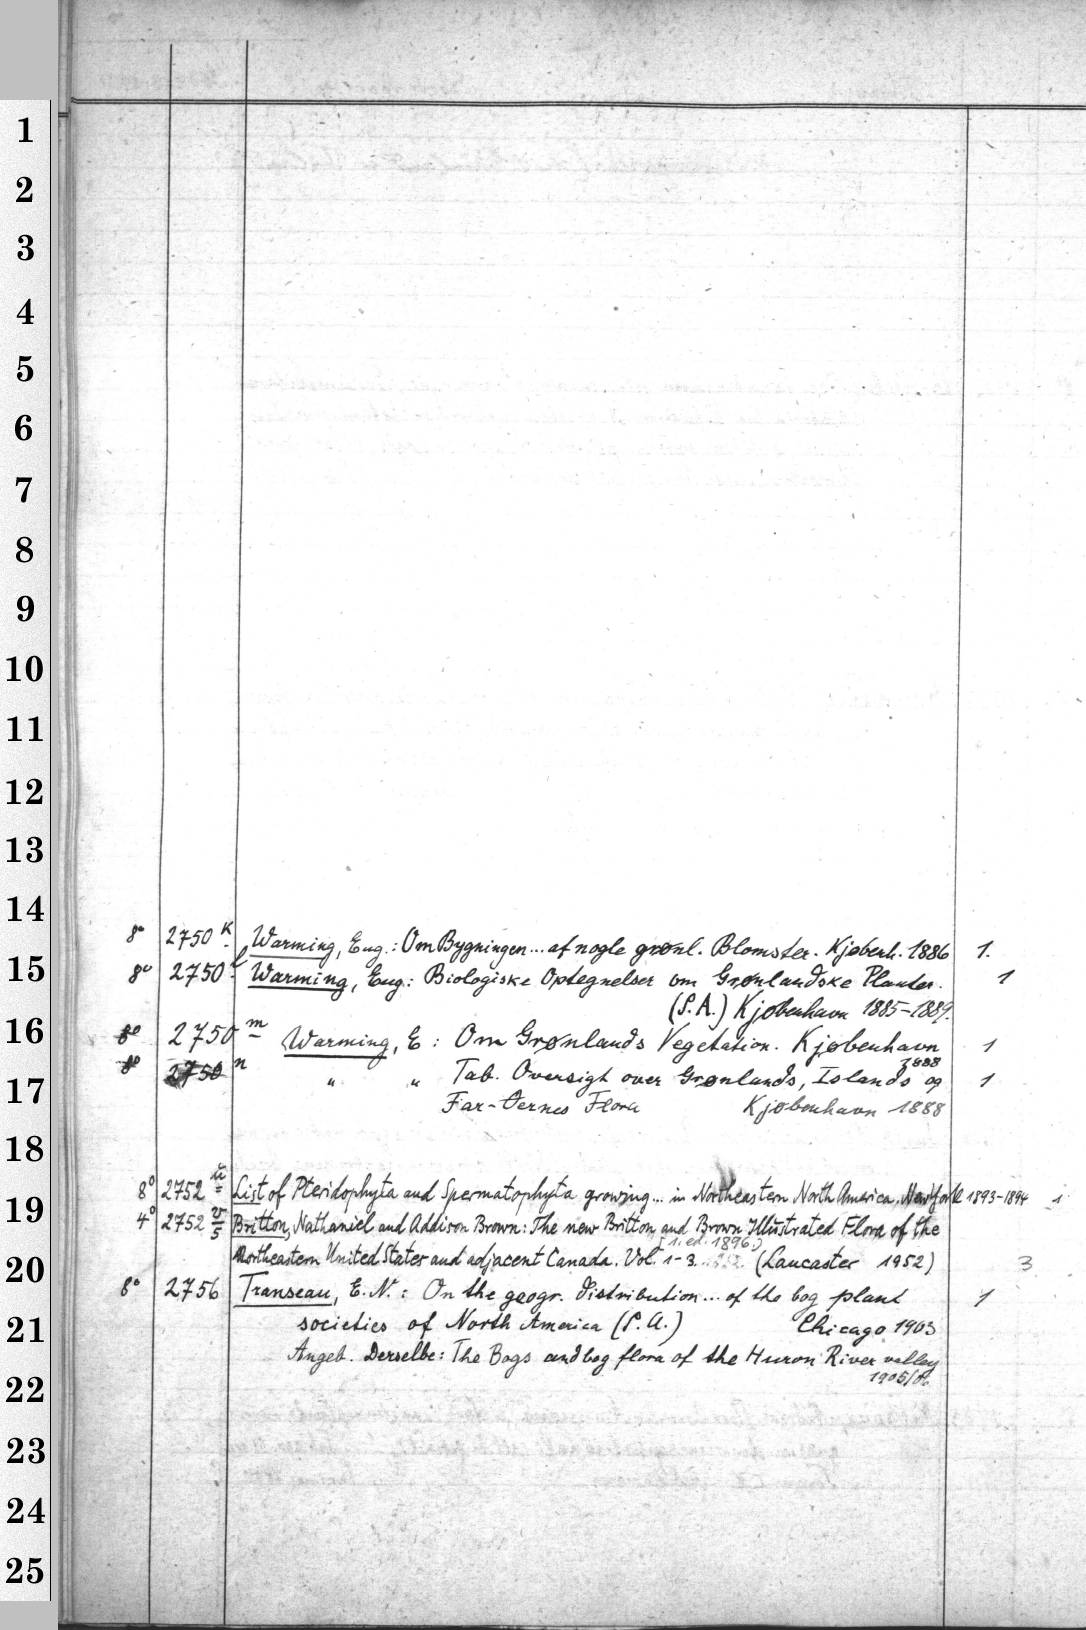 1
2
3
4
5
6
7
8
9
10
11
12
13
14
8° 2750 K Warming, Eug.: Om Bygningen... af nogle grønl. Blomster. Kjøbenh. 1886 1.
15
8° 2750 l Warming, Eug.: Biologiske Optegnelser om Grønlandske Planter. 1
(S.A.) Kjøbenhavn 1885-1889.
16
8° 2750 m Warming, E: Om Grønlands Vegetation. Kjøbenhavn 1
1888
8° 2750 n " " Tab. Oversigt over Grønlands, Islands og 1
17
Far-Øernes Flora Kjøbenhavn 1888
18
8° 2752 u List of Pteridophyta and Spermatophyta growing... in Northeastern North America. New York 1893-1894 1
19
4° 2752 v Britton, Nathaniel and Addison Brown: The new Britton and Brown Illustrated Flora of the
[1. ed. 1896.)
20
Northeastern United States and adjacent Canada. Vol. 1-3. (Lancaster 1952) 3
8° 2756 Transeau, E. N.: On the geogr. distribution... of the bog plant 1
21
societies of North America (S.A.) Chicago 1903
Angeb. Derselbe: The Bogs and bog flora of the Huron River valley
1905/06
22
23
24
25